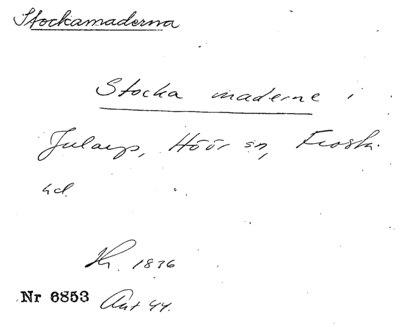 Stockamaderna
Stocka maderne i
Jularp, Höör sn, Frosta
hd.
Kr. 1836
Nr 6853 Ant 44.